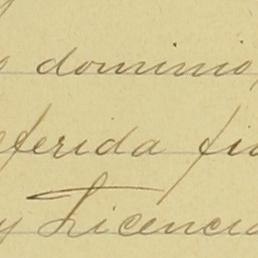 o dominio,
eferida fi
y Licencia